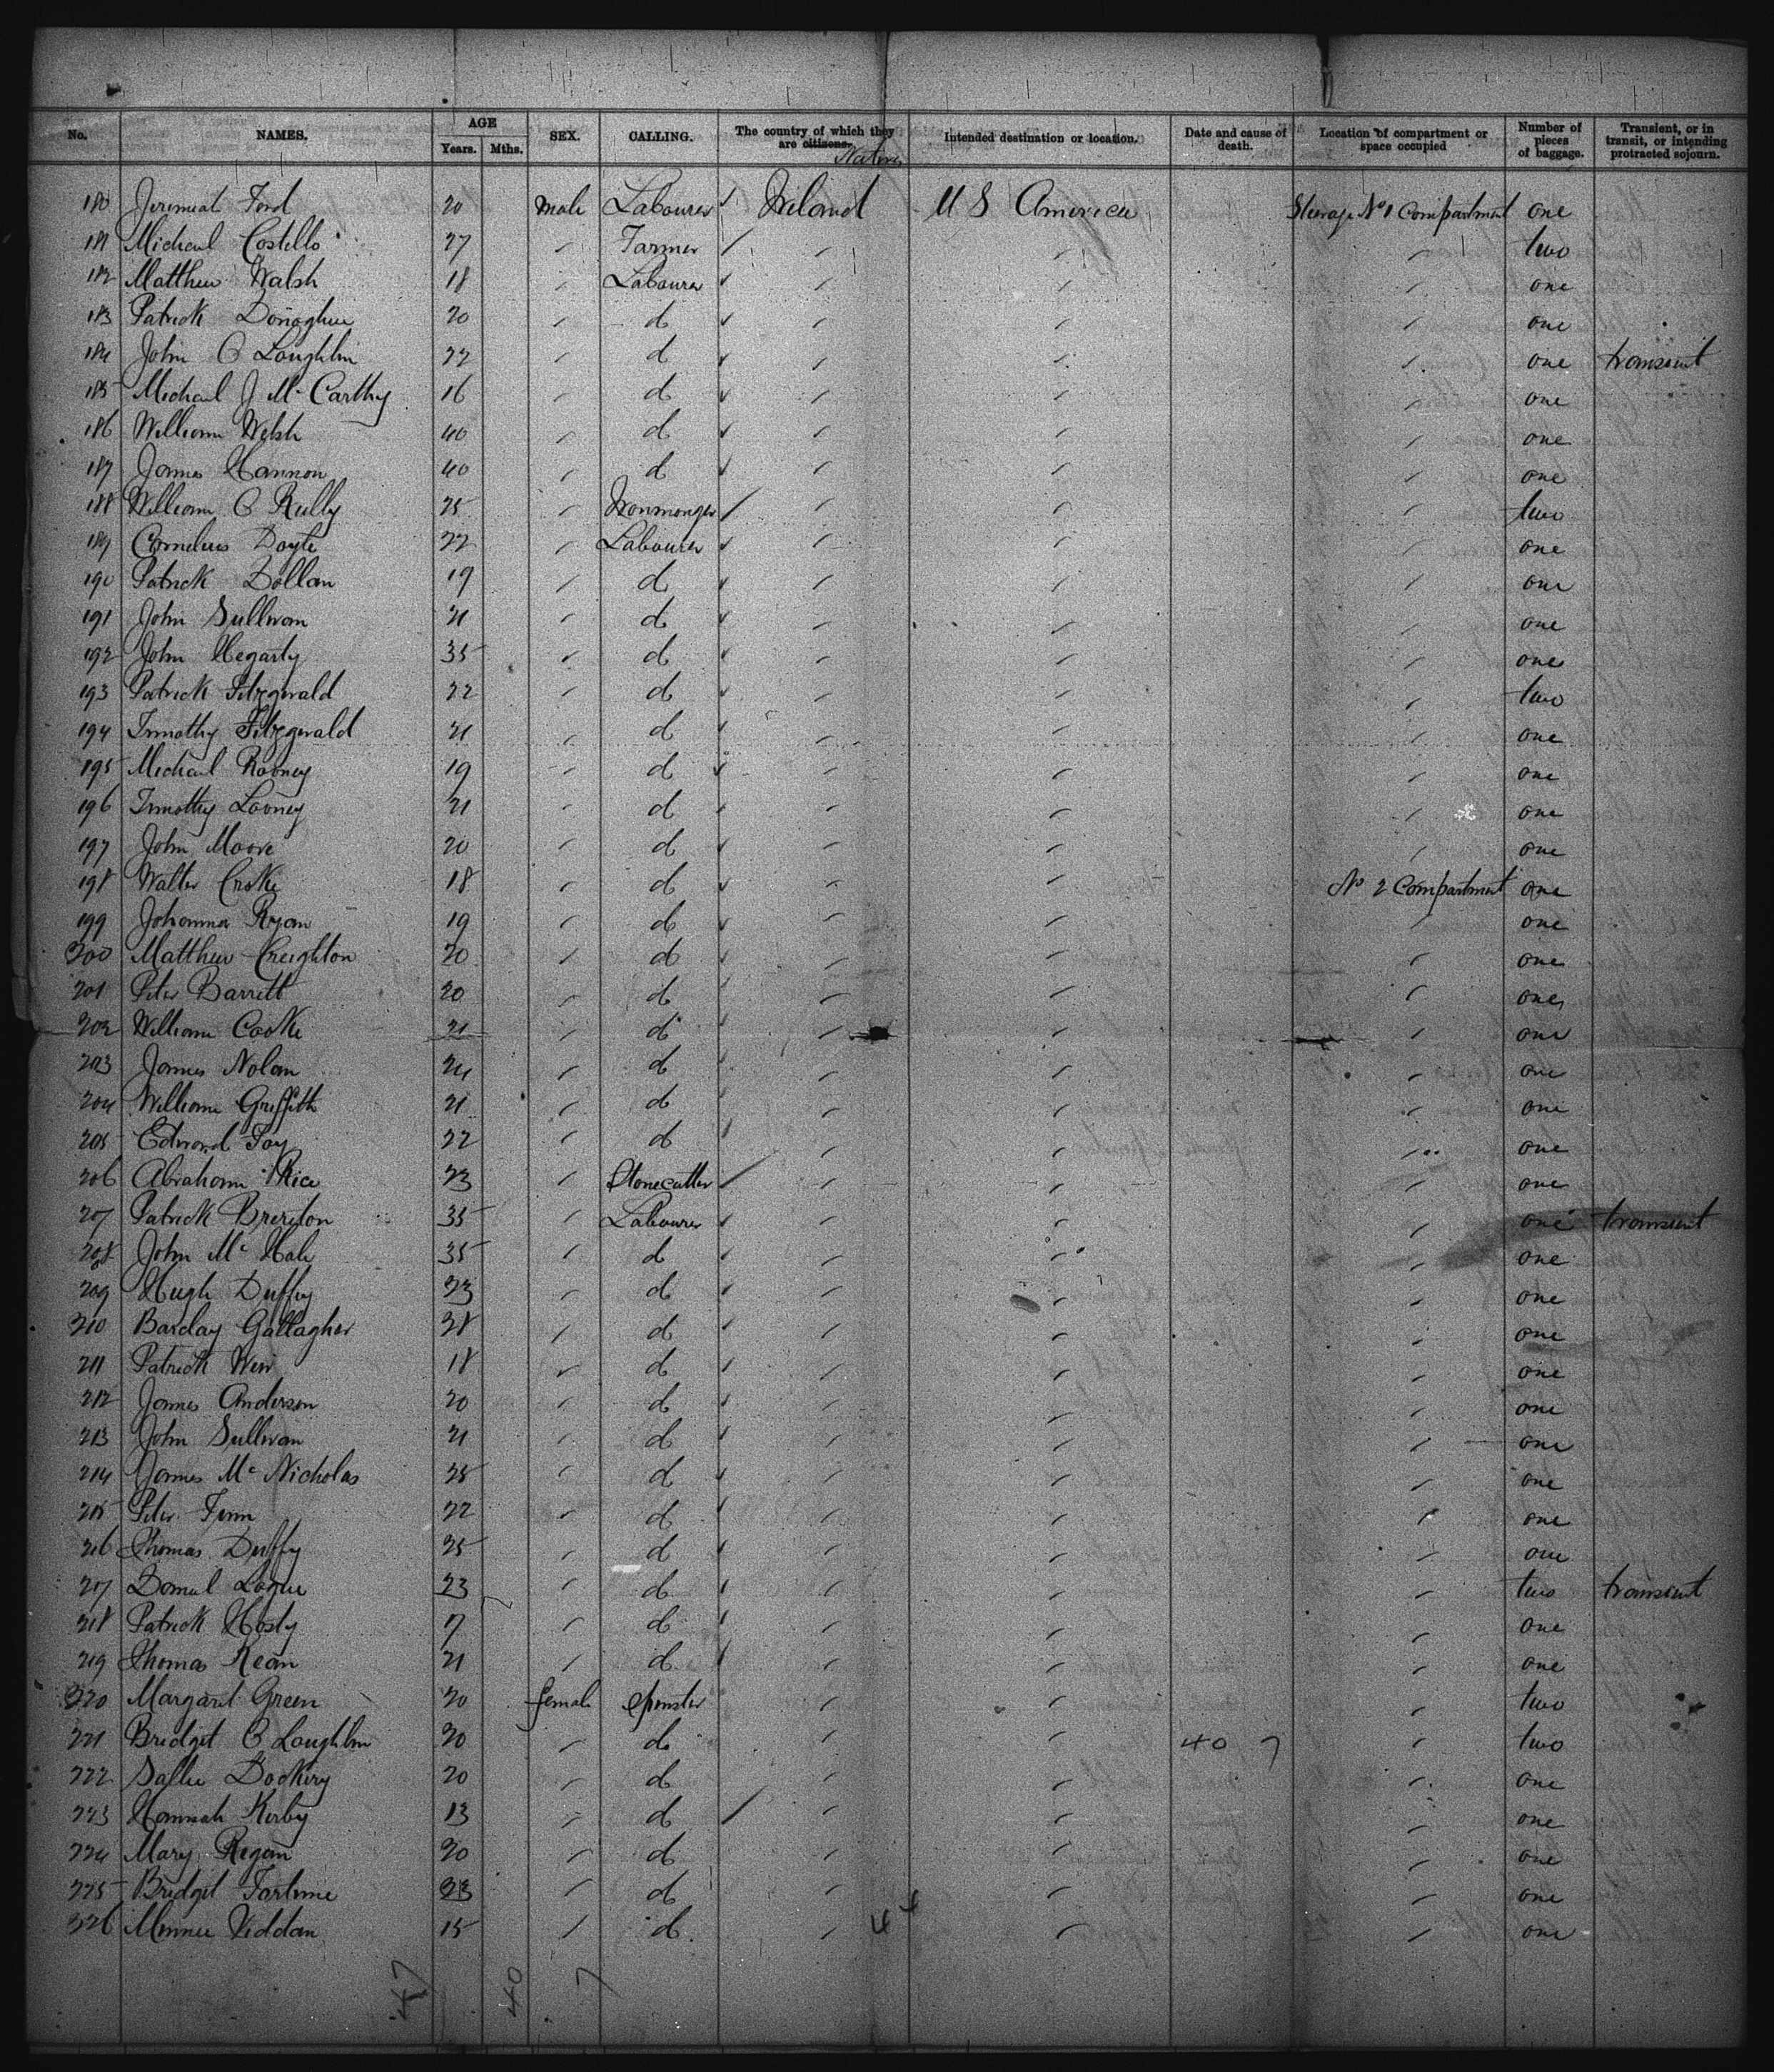 No. NAMES. AGE Years. Mths. SEX. CALLING. The country of which they are citizens. Natives Intended destination or location. Date and cause of death. Location of compartment or space occupied Number of pieces of baggage. Transient, or in transit, or intending protracted sojourn.
180 Jeremiah Ford 20 Male Labourer Ireland U S America Steerage No 1 Compartment one
181 Michael Costello 27 Farmer two
182 Matthew Walsh 18 Labourer one
183 Patrick Donoghue 20 do one
184 John O Loughlin 22 do one transient
185 Michael J Mc Carthy 16 do one
186 William Welsh 40 do one
187 James Hannon 40 do one
188 William O Reilly 25 Ironmonger two
189 Cornelius Doyle 22 Labourer one
190 Patrick Dollan 19 do one
191 John Sullivan 21 do one
192 John Hegarty 35 do one
193 Patrick Fitzgerald 22 do two
194 Timothy Fitzgerald 21 do one
195 Michael Rooney 19 do one
196 Timothy Looney 21 do one
197 John Moore 20 do one
198 Walter Croke 18 do No 2 Compartment one
199 Johanna Ryan 19 do one
200 Matthew Creighton 20 do one
201 Peter Barrett 20 do one
202 William Cooke 21 do one
203 James Nolan 24 do one
204 William Griffith 21 do one
205 Edmond Foy 22 do one
206 Abraham Rice 23 Stonecutter one
207 Patrick Brereton 35 Labourer one transient
208 John Mc Hale 35 do one
209 Hugh Duffy 23 do one
210 Barclay Gallagher 38 do one
211 Patrick Weir 18 do one
212 James Anderson 20 do one
213 John Sullivan 21 do one
214 James Mc Nicholas 25 do one
215 Peter Finn 22 do one
216 Thomas Duffy 25 do one
217 Daniel Logue 23 do two transient
218 Patrick Hosty 17 do one
219 Thomas Kean 21 do one
220 Margaret Green 20 female Spinster two
221 Bridget O Loughlin 20 do 40 7 two
222 Sallie Dockery 20 do one
223 Hannah Kirby 13 do one
224 Mary Regan 20 do one
225 Bridget Fortune 23 do one
226 Minnie Viddan 15 do one
47 40 7